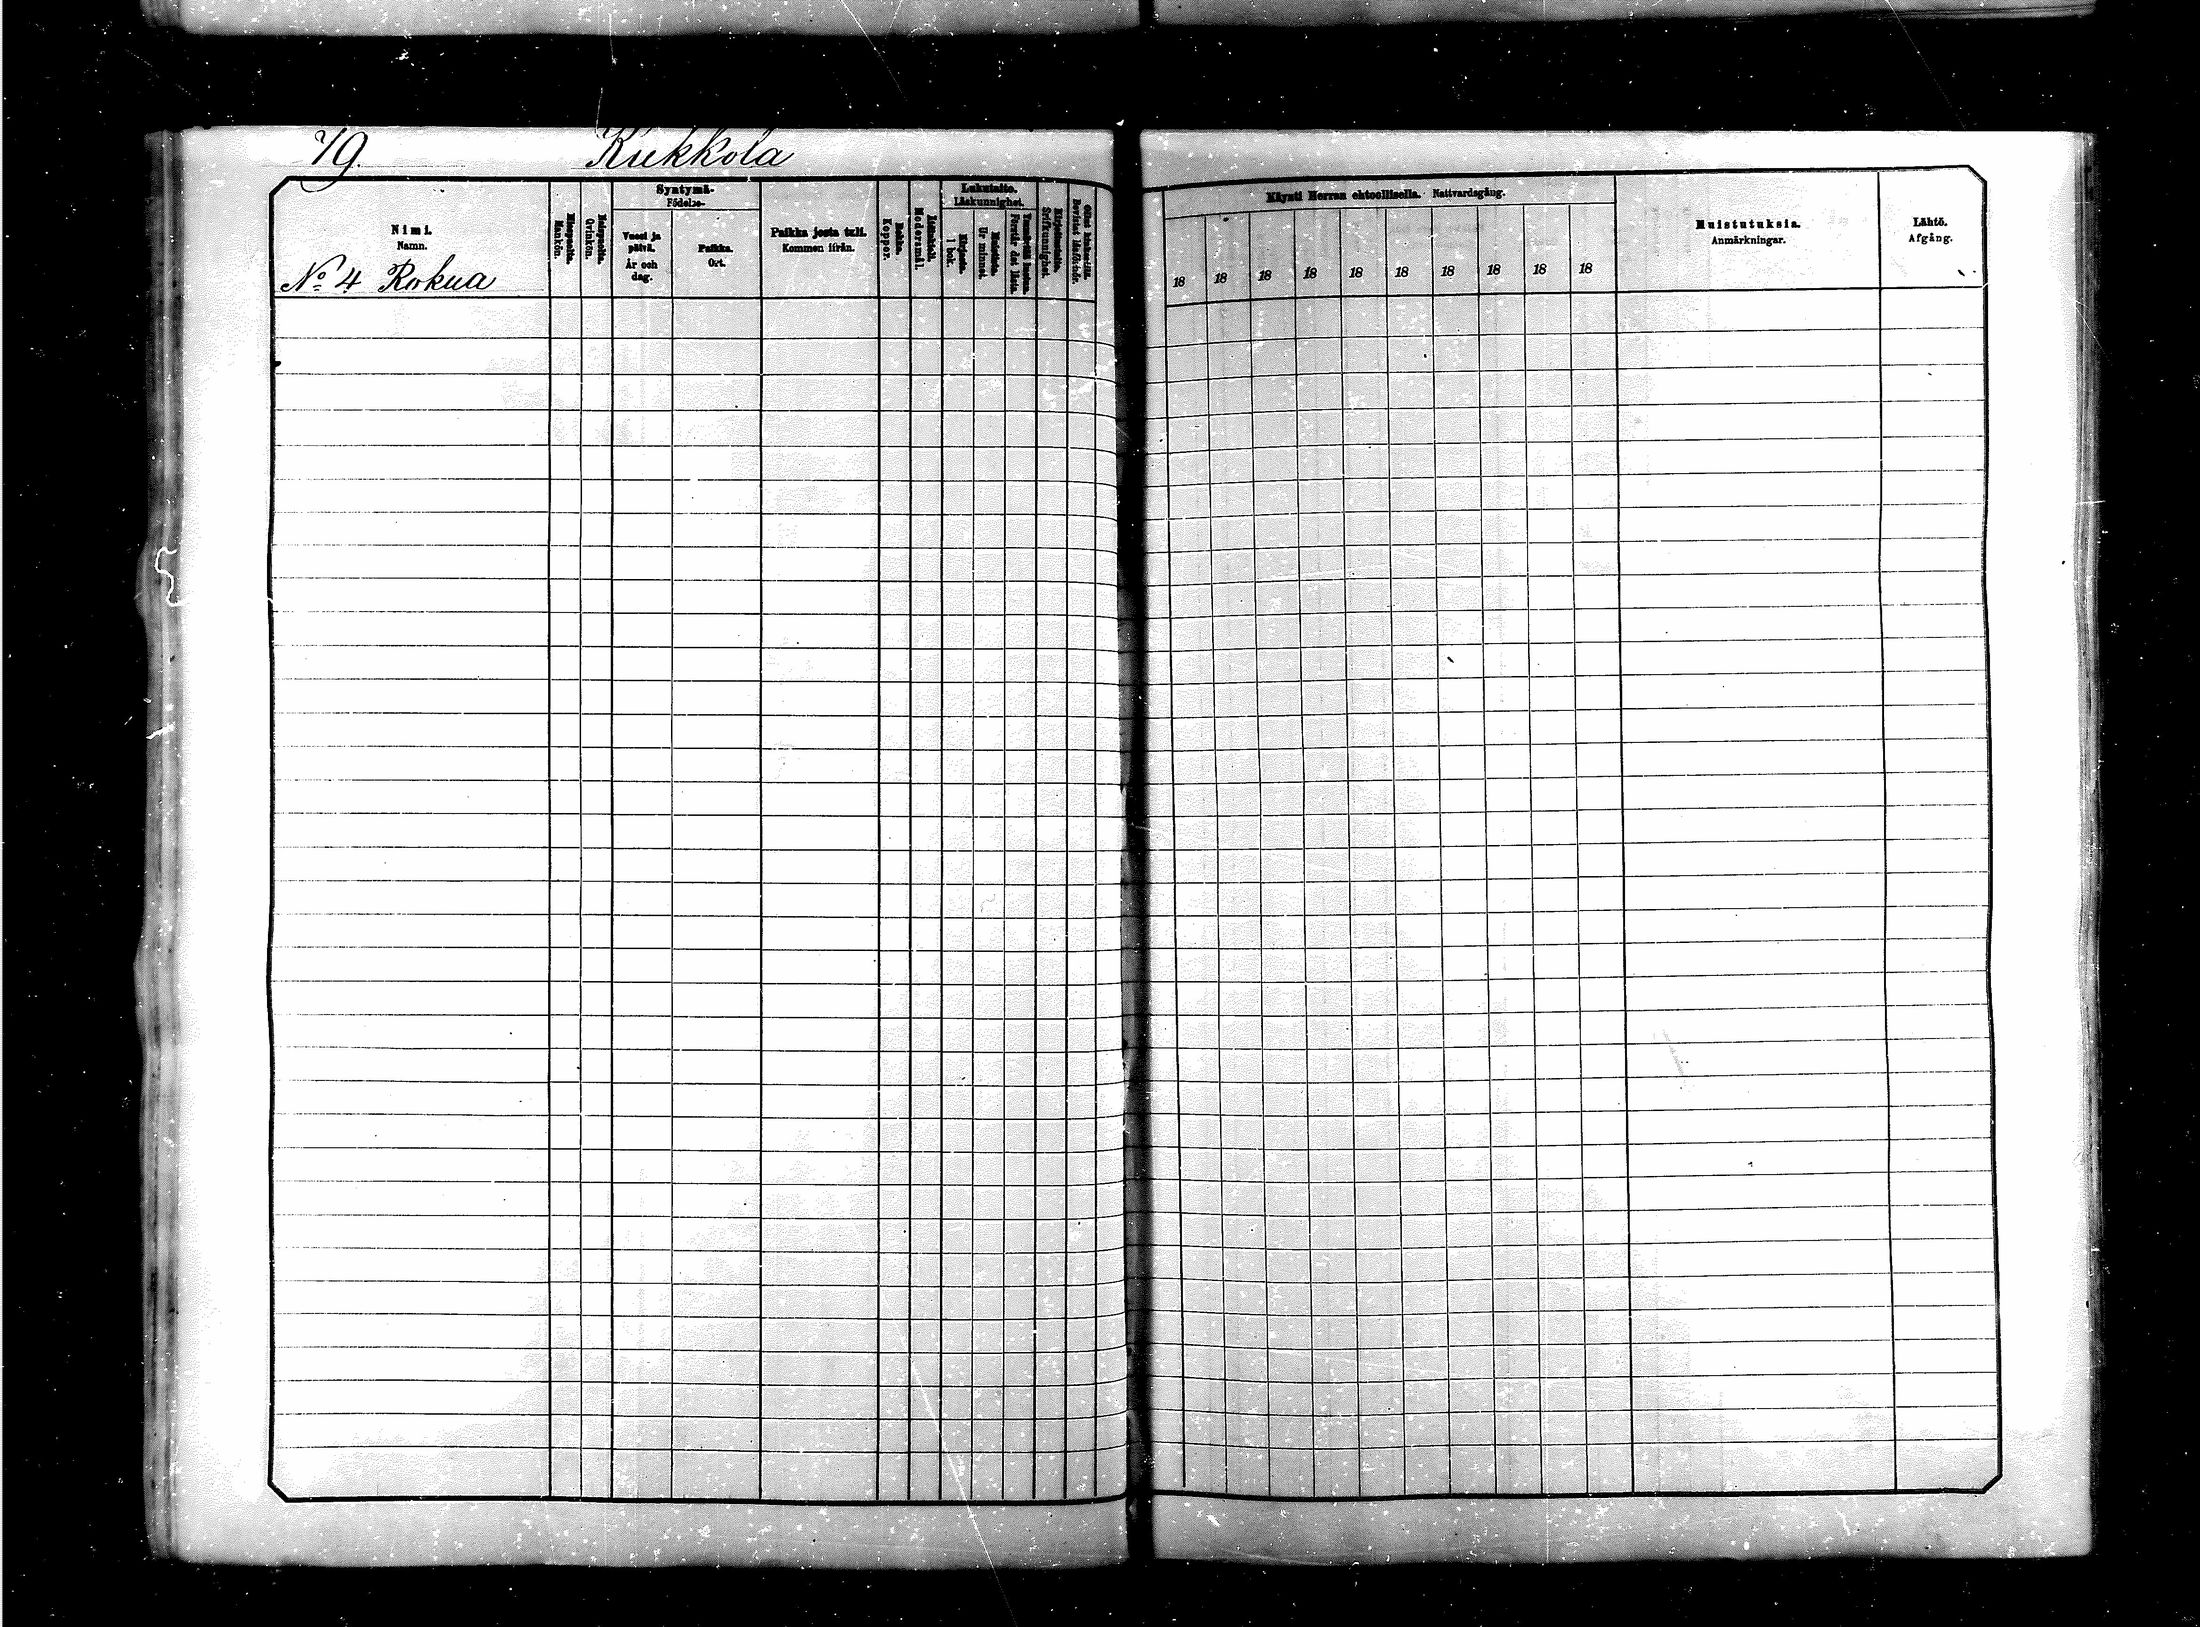 79. Kukkola
Syntymä-
Födelse-
Lukutaito.
Läskunnighet.
Nimi.
Namn.
Miespuolia.
Mankön.
Vaimpuolia.
Qvinkön.
Vuosi ja
päivä.
År och
dag.
Paikka.
Ort.
Paikka josta tuli.
Kommen ifrån.
Rokko.
Koppor.
Modersmål.
Kirjasta.
I bok.
Ulkoa.
Ur minnet.
Förstår det lästa.
Kirjoitustaito.
Skrifkunnighet.
No 4 Rokua
Käynti Herran ehtoollisella. Nattvardsgång.
18 18 18 18 18 18 18 18 18 18
Muistutuksia.
Anmärkningar.
Lähtö.
Afgång.